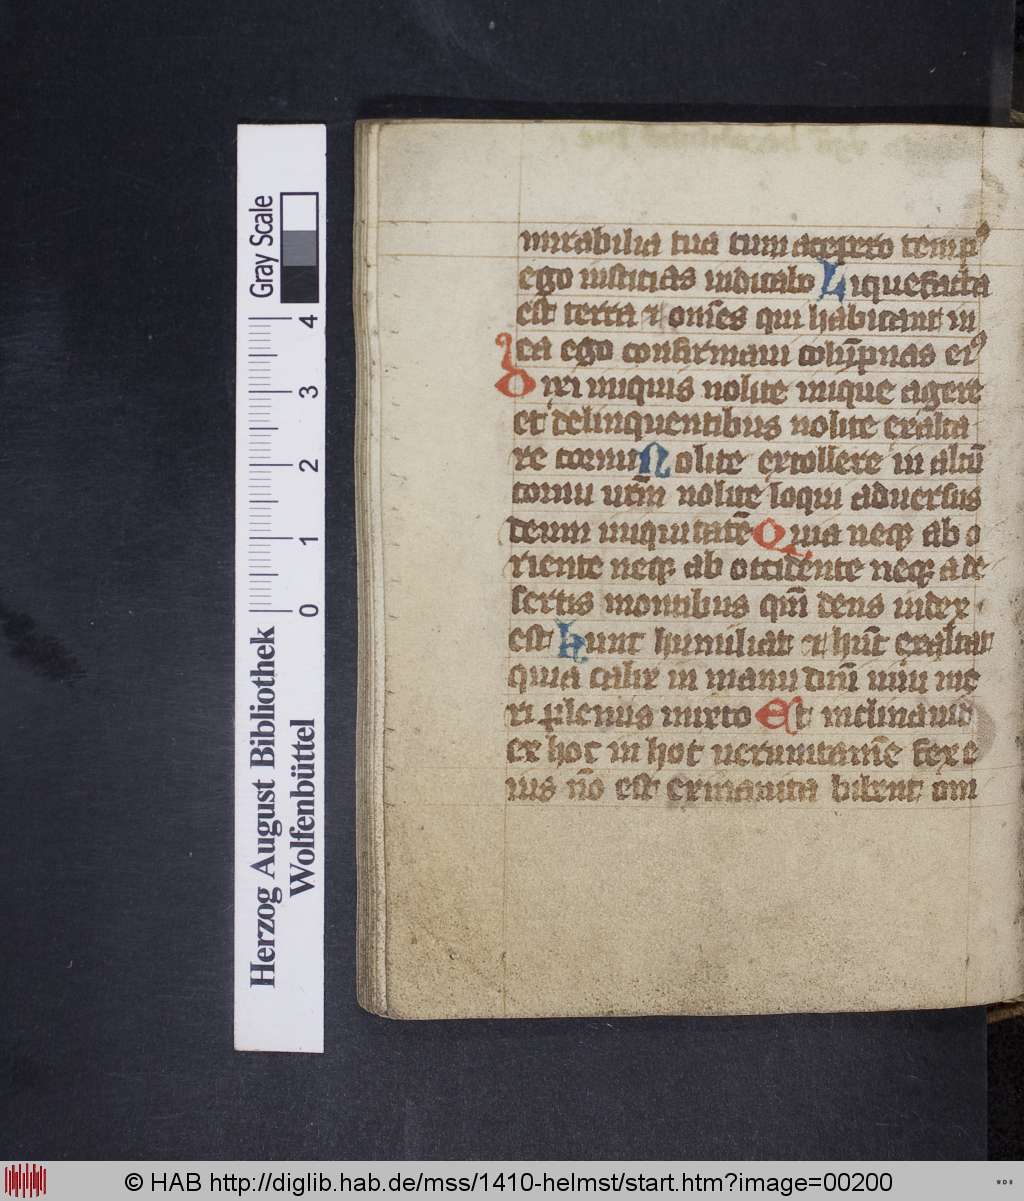 mirabilia tua cum accepero tempꝰ
ego iusticias iudicabo Liquefacta
est terra ⁊ om̄s qui habitant in
ea ego confirmaui colūpnas eiꝰ
Dixi iniquis nolite inique agere
et delinquentibus nolite exalta
re cornu Nolite extollere in altū
cornu ur̄m nolite loqui aduersus
deum iniquitatē Quia neqꝫ ab o
riente neqꝫ ab occidente neqꝫ a de
sertis montibus qm̄ deus iudex
est hunc humiliat ⁊ hūc exaltat
quia calix in manu dn̄i uini me
ri plenus mixto Et inclinauit
ex hoc in hoc uerumtamē fex e
ius nō est exinanita bibent om
Gray Scale
0 1 2 3 4
Herzog August Bibliothek
Wolfenbüttel
© HAB http://diglib.hab.de/mss/1410-helmst/start.htm?image=00200